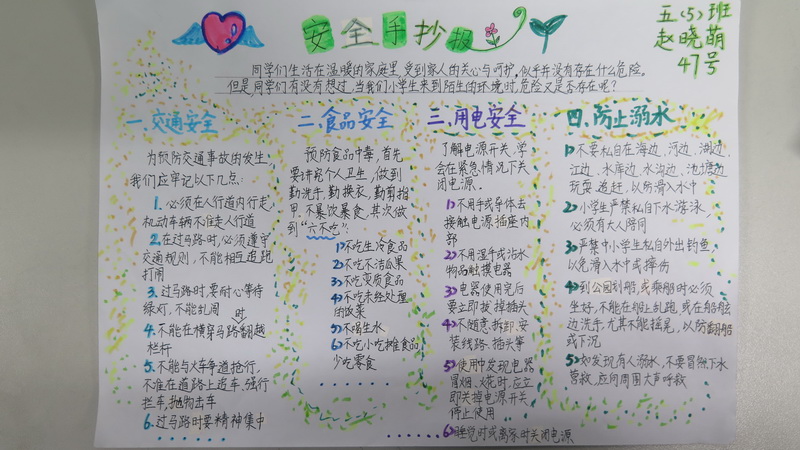 安全手抄报
五(5)班
赵晓萌
47号
同学们生活在温暖的家庭里,受到家人的关心与呵护,似乎并没有存在什么危险。
但是同学们有没有想过,当我们小学生来到陌生的环境时,危险又是否存在呢?
一.交通安全
为预防交通事故的发生,
我们应牢记以下几点:
1.必须在人行道内行走,
机动车辆不准走人行道
2.在过马路时,必须遵守
交通规则,不能相互追跑
打闹
3.过马路时,要耐心等待
绿灯,不能乱闯
4.不能在横穿马路时翻越
栏杆
5.不能与火车争道抢行,
不准在道路上追车、强行
拦车,抛物击车
6.过马路时要精神集中
二.食品安全
预防食品中毒,首先
要讲究个人卫生,做到
勤洗手,勤换衣,勤剪指
甲,不暴饮暴食,其次做
到“六不吃”:
1)不吃生冷食品
2)不吃不洁瓜果
3)不吃变质食品
4)不吃未经处理
的饭菜
5)不喝生水
6)不吃小吃摊食品
少吃零食
三.用电安全
了解电源开关,学
会在紧急情况下关
闭电源.
1)不用手或导体去
接触电源插座内
部
2)不用湿手或沾水
物品触摸电器
3)电器使用完后
要立即拔掉插头
4)不随意拆卸,安
装线路、插头等
5)使用中发现电器
冒烟、火花时,应立
即关掉电源开关
停止使用
6)睡觉时或离家时关闭电源
四.防止溺水
1)不要私自在海边、河边、湖边、
江边、水库边、水沟边、池塘边
玩耍、追赶,以防滑入水中
2)小学生严禁私自下水游泳,
必须有大人陪同
3)严禁中小学生私自外出钓鱼,
以免滑入水中或摔伤
4)到公园划船,或乘船时必须
坐好,不能在船上乱跑,或在船舷
边洗手,尤其不能摇晃,以防翻船
或下沉
5)如发现有人溺水,不要冒然下水
营救,应向周围大声呼救